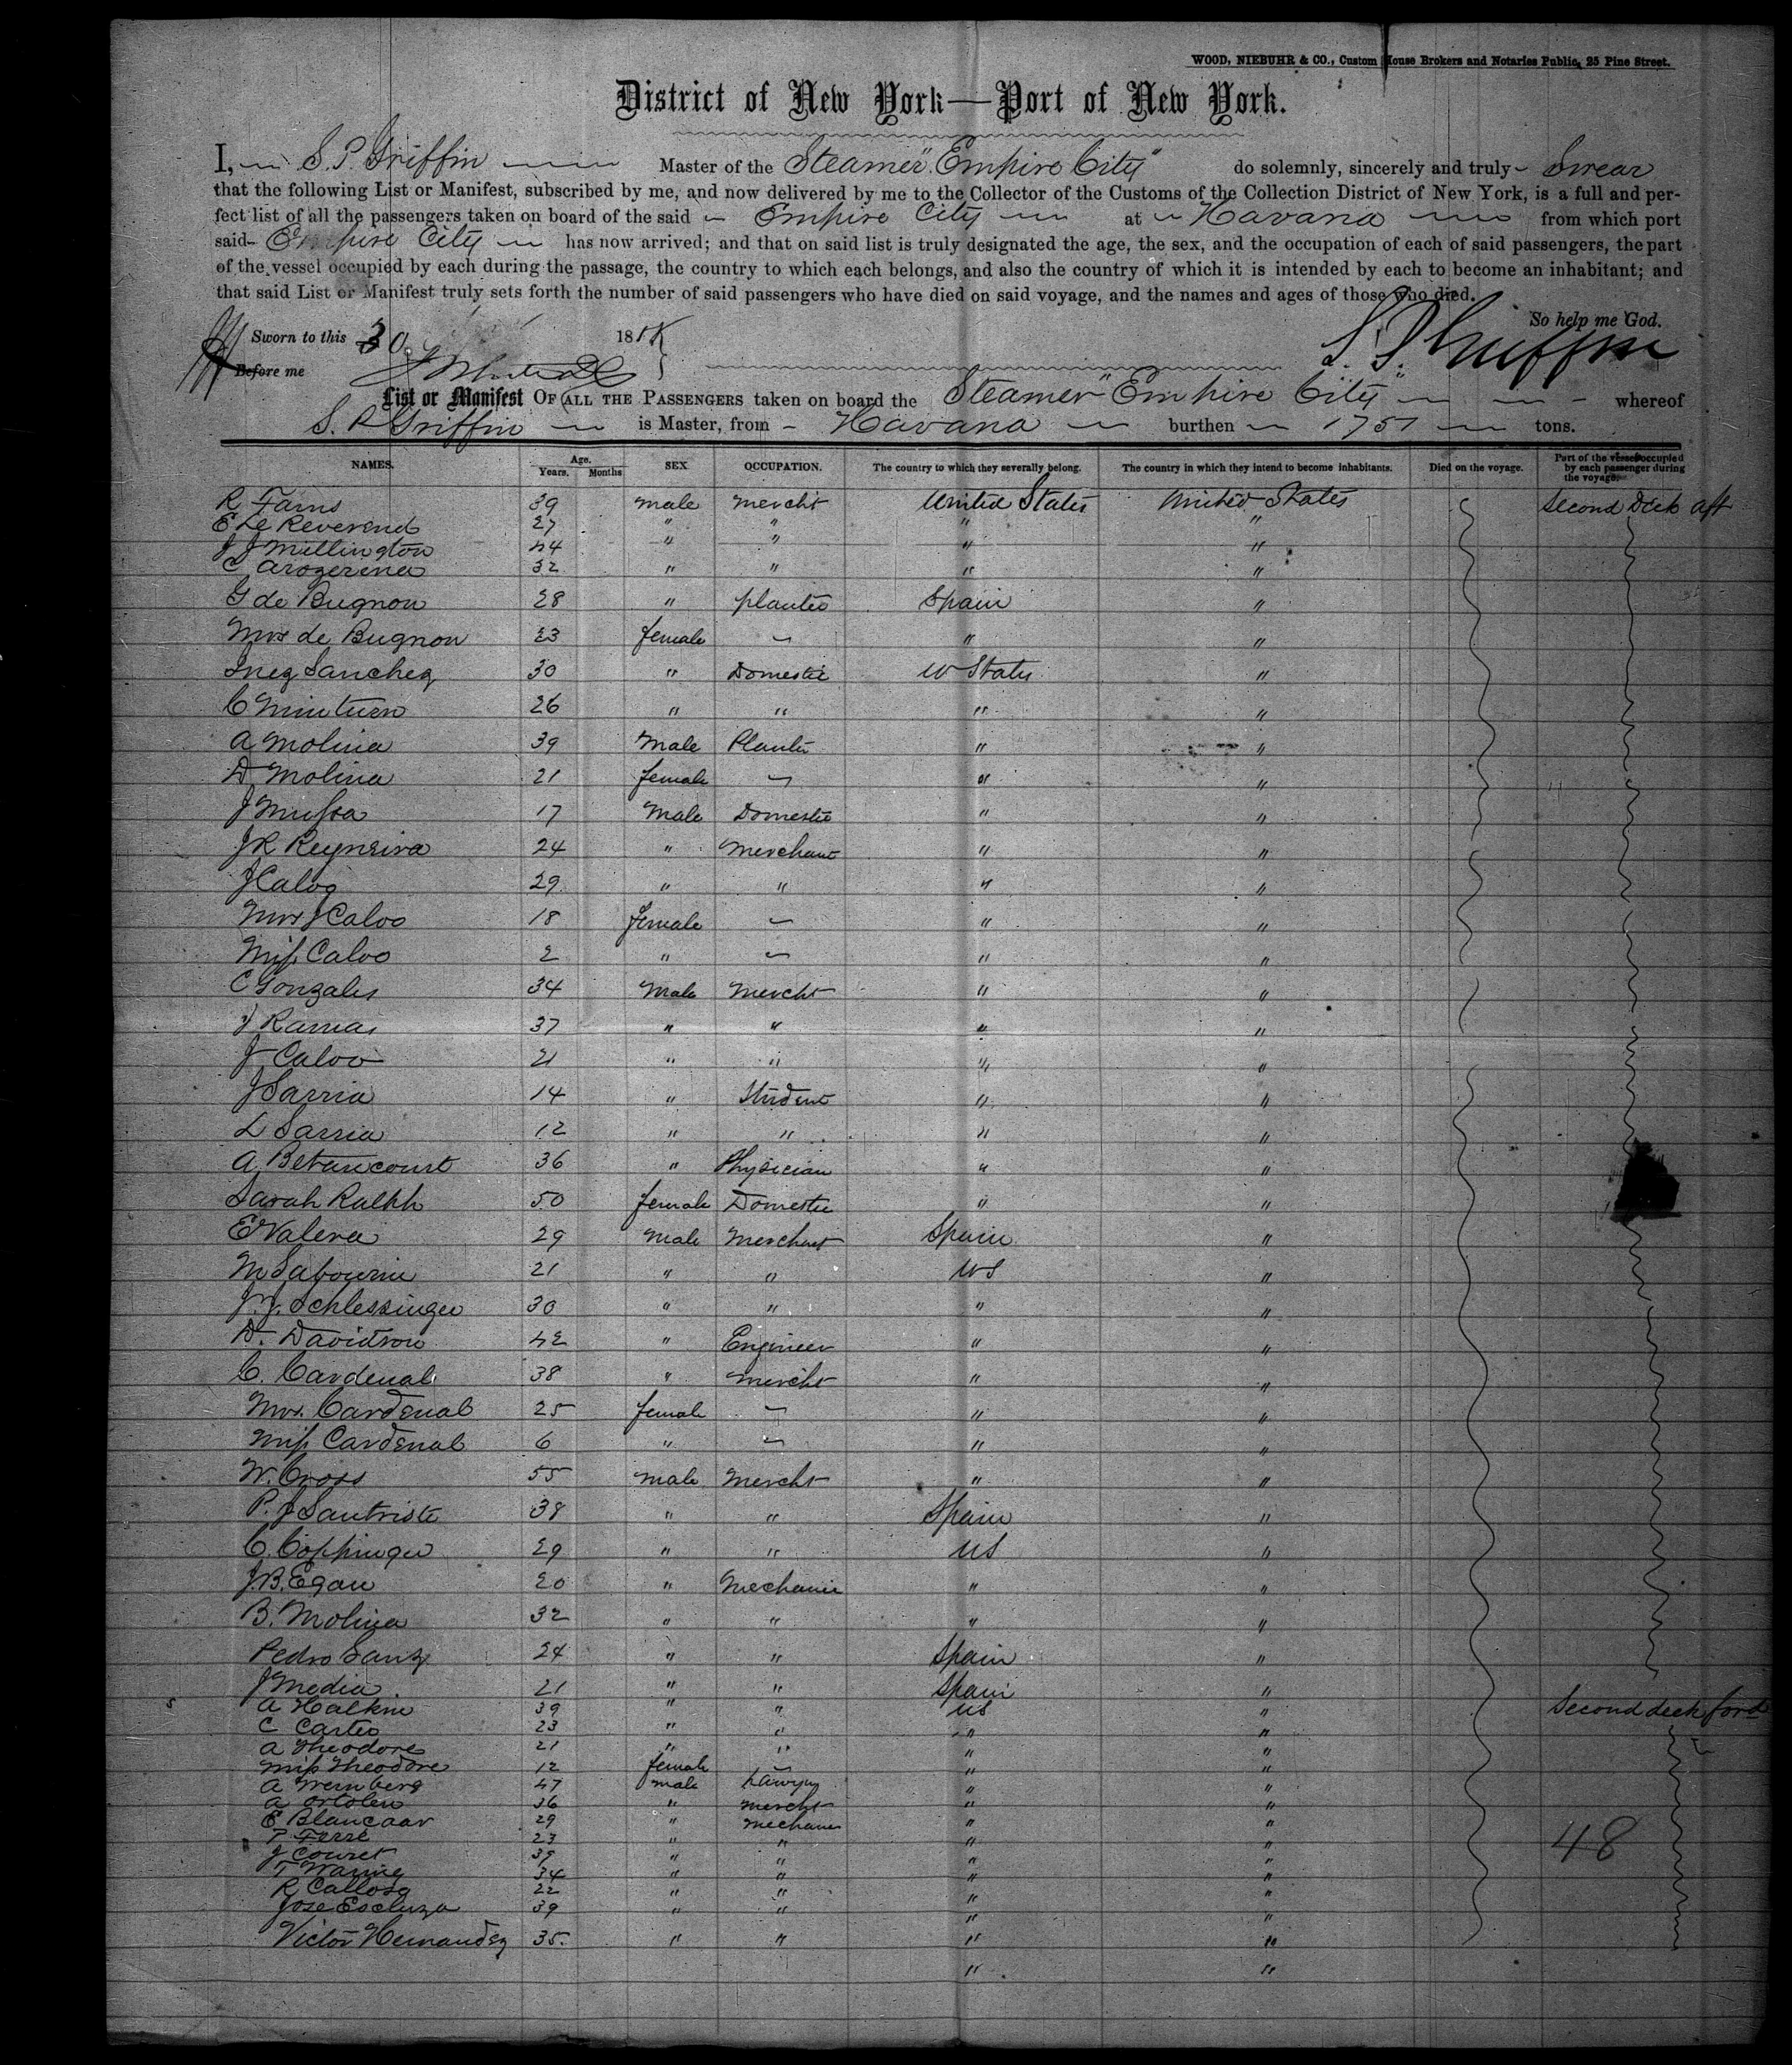 WOOD, NIEBUHR & CO., Custom House Brokers and Notaries Public, 25 Pine Street.
District of New York—Port of New York.
I, S. P. Griffin Master of the Steamer "Empire City" do solemnly, sincerely and truly Swear
that the following List or Manifest, subscribed by me, and now delivered by me to the Collector of the Customs of the Collection District of New York, is a full and per-
fect list of all the passengers taken on board of the said Empire City at Havana from which port
said Empire City has now arrived; and that on said list is truly designated the age, the sex, and the occupation of each of said passengers, the part
of the vessel occupied by each during the passage, the country to which each belongs, and also the country of which it is intended by each to become an inhabitant; and
that said List or Manifest truly sets forth the number of said passengers who have died on said voyage, and the names and ages of those who died.
So help me God.
Sworn to this 30 18
S. P. Griffin
Before me
List or Manifest OF ALL THE PASSENGERS taken on board the Steamer "Empire City" whereof
S. P. Griffin is Master, from Havana burthen 1751 tons.
NAMES. Age. Years. Months SEX OCCUPATION. The country to which they severally belong. The country in which they intend to become inhabitants. Died on the voyage. Part of the vessel occupied by each passenger during the voyage.
R Farns 39 male mercht United States United States Second Deck aft
E Le Reverend 27 " " " "
J J Millington 44 " " " "
C Arozerena 32 " " " "
G de Bugnon 28 " planter Spain "
Mrs de Bugnon 23 female — " "
Inez Sanchez 30 " Domestic U States "
C Minturn 26 " " " "
A Molina 39 Male Planter " "
D Molina 21 female — " "
J 17 Male Domestic " "
J R Reyneira 24 " Merchant " "
J Calvo 29 " " " "
Mrs J Calvo 18 female — " "
Miss Calvo 2 " — " "
C Gonzales 34 Male Mercht " "
J Ramas 37 " " " "
J Calvo 21 " " " "
J Sarria 14 " Student " "
L Sarria 12 " " " "
A Betancourt 36 " Physician " "
Sarah Ralph 50 female Domestic " "
E Valera 29 male Merchant Spain "
M Labourin 21 " " US "
J. J. Schlessinger 30 " " " "
D. Davidson 42 " Engineer " "
C. Cardenal 38 " mercht " "
Mrs. Cardenal 25 female — " "
Miss Cardenal 6 " — " "
W. Cross 55 male Mercht " "
P. J Santriste 38 " " Spain "
C. Coppinger 29 " " US "
J. B. Egan 20 " Mechanic " "
B. Molina 32 " " " "
Pedro Sanz 24 " " Spain "
J Media 21 " " Spain "
A Halkin 39 " " US " Second deck ford
C Carter 23 " " " "
A Theodore 21 " " " "
Miss Theodore 12 female — " "
A Weinberg 47 male Lawyer " "
A Ortolen 36 " mercht " "
E Blancaar 29 " mechanic " "
P Ferre 23 " " " "
48
J Couret 39 " " " "
T Waring 34 " " " "
R Callosa 22 " " " "
Jose Escluza 39 " " " "
Victor Hernandez 35. " " " "
" "